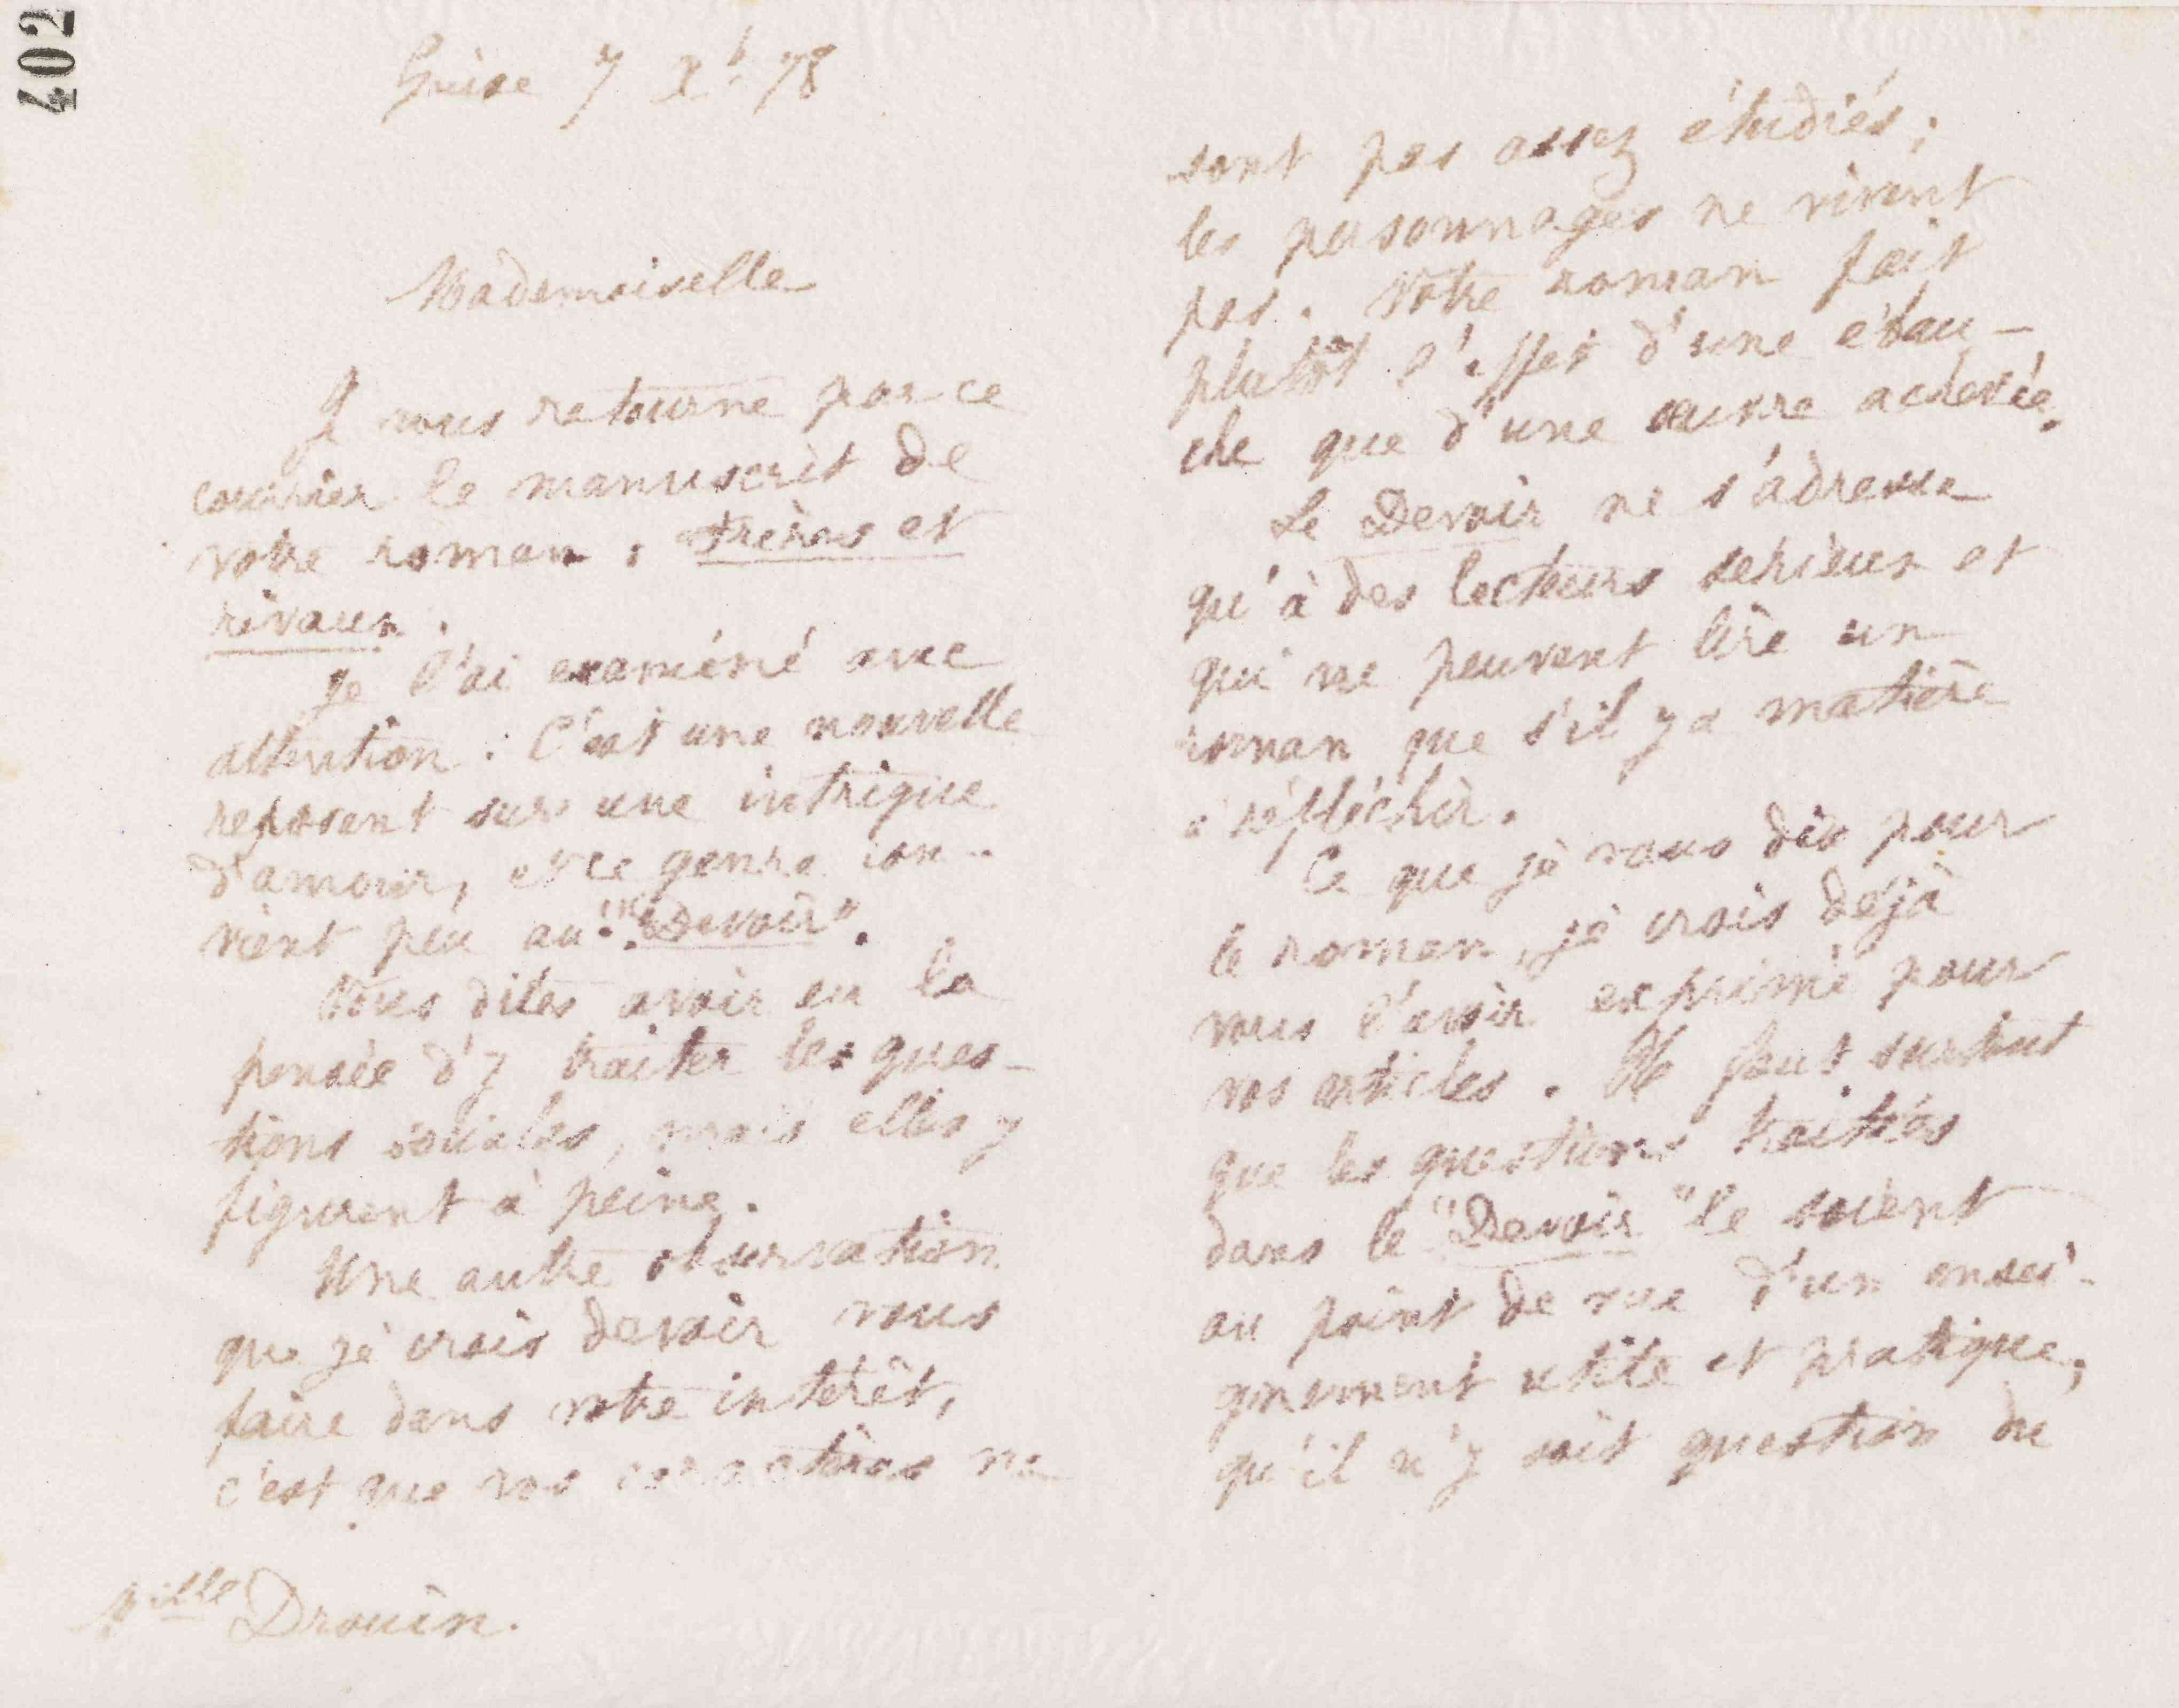 402
Guise 7 Xb 78
Mademoiselle
Je vous retourne par ce
courrier le manuscrit de
votre roman : Frères et
rivaux.
Je l'ai examiné avec
attention : C'est une nouvelle
reposant sur une intrigue
d'amour, et ce genre con-
vient peu au "Devoir".
Vous dites avoir eu la
pensée d'y traiter les ques-
tions sociales, mais elles y
figurent à peine.
Une autre observation
que je crois devoir vous
faire dans votre intérêt,
c'est que vos caractères ne
Melle Drouin.
sont pas assez étudiés ;
les personnages ne vivent
pas. Votre roman fait
plutôt l'effet d'une ébau-
che que d'une œuvre achevée.
Le Devoir ne s'adresse
qu'à des lecteurs sérieux et
qui ne peuvent lire un
roman que s'il y a matière
à réfléchir.
Ce que je vous dis pour
le roman, je crois déjà
vous l'avoir exprimé pour
vos articles. Il faut surtout
que les questions traitées
dans le "Devoir" le soient
au point de vue d'un ensei-
gnement utile et pratique,
qu'il n'y soit question de